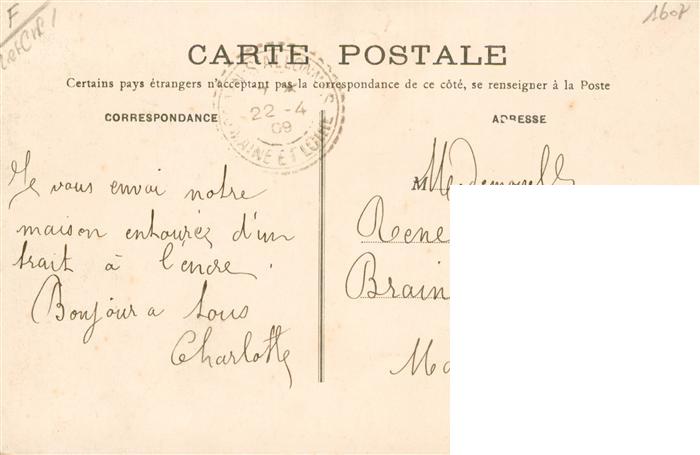 F
1607
CARTE POSTALE
Certains pays étrangers n'acceptant pas la correspondance de ce côté, se renseigner à la Poste
CORRESPONDANCE
ADRESSE
22 -4
09
MAINE ET LOIRE
Je vous envoi notre
maison entourée d'un
trait à l'encre.
Bonjour a tous
Charlotte
M
Rene
Brain